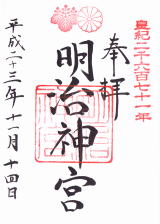 皇紀二千六百七十一年
奉拝
明治神宮
平成二十三年十一月十四日